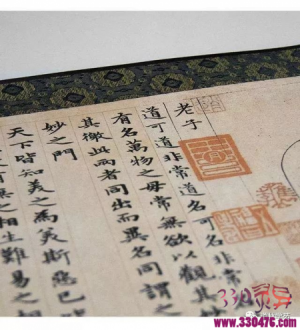 老子
道可道非常道名可名非常
有名萬物之母常無欲以觀其
其徼此兩者同出而異名同謂之
妙之門
天下皆知美之為美斯惡已
無之相生難易之相
330灵异
www.330476.com